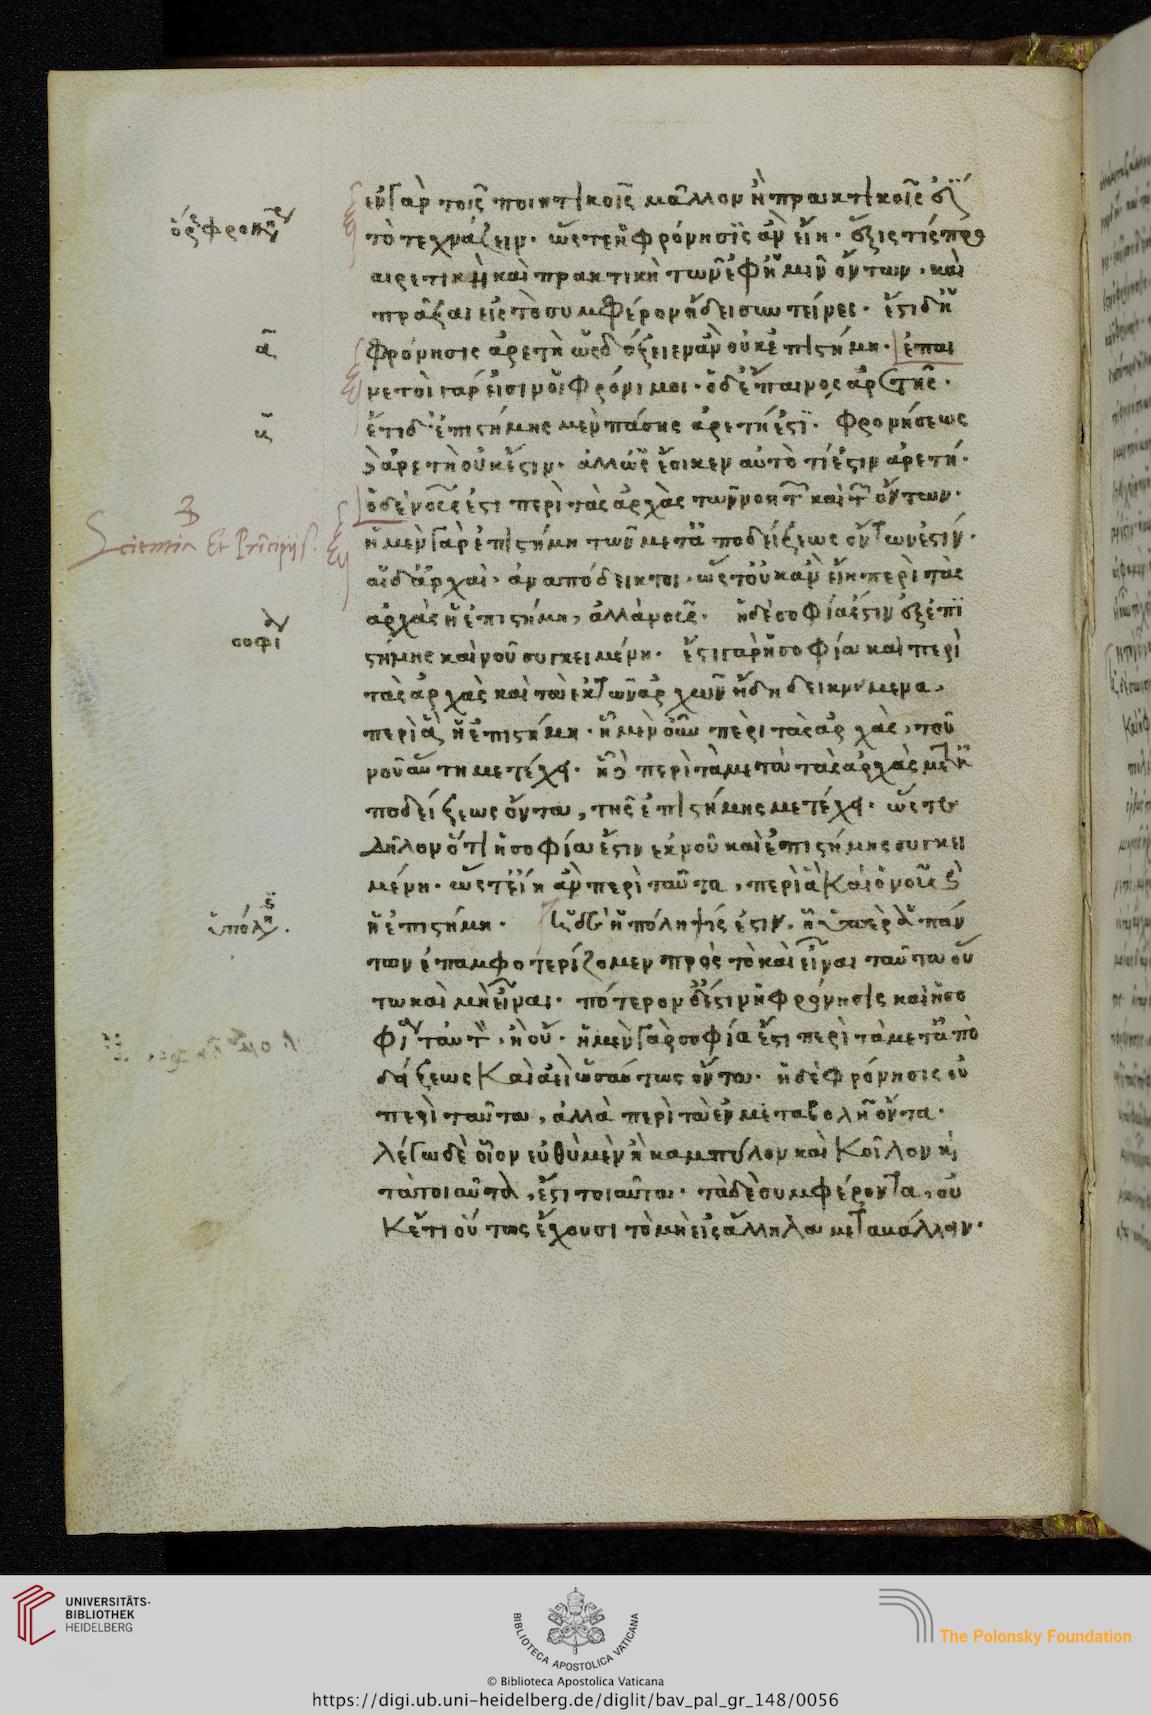 ἐν γὰρ τοῖς ποιητικοῖς μᾶλλον ἢ πρακτικοῖς ἐστὶ
τὸ τεχνάζειν· ὥστε ἡ φρόνησις ἂν εἴη· ἕξις τίς προ
αιρετικὴ καὶ πρακτικὴ τῶν ἐφ ἡμῖν ὄντων, καὶ
πρᾶξαι εἰς τὸ συμφέρον ἤδει συντείνει· ἔστι δ ἡ
φρόνησις ἀρετὴ ὡς δόξειεν ἂν οὐκ ἐπιστήμη· ἐπαι
νετοὶ γάρ εἰσιν οἱ φρόνιμοι· ὁ δ ἔπαινος ἀρετῆς·
ἔτι δ ἐπιστήμης μὲν πάσης ἀρετή ἐστι· φρονήσεως
δὲ ἀρετὴ οὐκ ἔστιν· ἀλλ ὡς ἔοικεν αὐτὸ τί ἐστιν ἀρετή·
ὁ δὲ νοῦς ἐστι περὶ τὰς ἀρχὰς τῶν νοητῶν καὶ τῶν ὄντων·
ἡ μὲν γὰρ ἐπιστήμη τῶν μετ ἀποδείξεως ὄντων ἐστίν·
αἱ δ ἀρχαὶ ἀναπόδεικτοι, ὥστ οὐκ ἂν εἴη περὶ τὰς
ἀρχὰς ἡ ἐπιστήμη, ἀλλὰ νοῦς· ἡ δὲ σοφία ἐστὶν ἐξ ἐπι
στήμης καὶ νοῦ συγκειμένη· ἔστι γὰρ ἡ σοφία καὶ περὶ
τὰς ἀρχὰς καὶ τὰ ἐκ τῶν ἀρχῶν ἤδη δεικνύμενα,
περὶ ἃ ἡ ἐπιστήμη· ἡ μὲν οὖν περὶ τὰς ἀρχὰς, τοῦ
νοῦ αὐτὴ μετέχει· ἡ δὲ περὶ τὰ μετὰ τὰς ἀρχὰς μετ ἀ
ποδείξεως ὄντα, τῆς ἐπιστήμης μετέχει· ὥστε
δῆλον ὅτι ἡ σοφία ἐστὶν ἐκ νοῦ καὶ ἐπιστήμης συγκει
μένη· ὥστ εἴη ἂν περὶ ταῦτα, περὶ ἃ καὶ ὁ νοῦς καὶ
ἡ ἐπιστήμη· ἡ δ ὑπόληψίς ἐστιν, ᾗ ὑπὲρ ἁπάν
των ἐπαμφοτερίζομεν πρὸς τὸ καὶ εἶναι ταῦτα οὕ
τω καὶ μὴ εἶναι· πότερον δ ἐστὶν ἡ φρόνησις καὶ ἡ σο
φία ταὐτὸν, ἢ οὔ· ἡ μὲν γὰρ σοφία ἐστι περὶ τὰ μετ ἀπο
δείξεως καὶ ἀεὶ ὡσαύτως ὄντα· ἡ δὲ φρόνησις οὐ
περὶ ταῦτα, ἀλλὰ περὶ τὰ ἐν μεταβολῇ ὄντα·
λέγω δὲ οἷον εὐθὺ μὲν ἢ καμπύλον καὶ κοῖλον καὶ
τὰ τοιαῦτα, ἔστι τοιαῦτα· τὰ δὲ συμφέροντα, οὐ
κέτι οὕτως ἔχουσι τὸ μὴ εἰς ἄλληλα μεταβάλλειν·
ὅρος φρονήσεως
α
β
Scientia Et Principijs.
σοφία
ὑπόληψις.
UNIVERSITÄTS-
BIBLIOTHEK
HEIDELBERG
BIBLIOTECA APOSTOLICA VATICANA
The Polonsky Foundation
© Biblioteca Apostolica Vaticana
https://digi.ub.uni-heidelberg.de/diglit/bav_pal_gr_148/0056